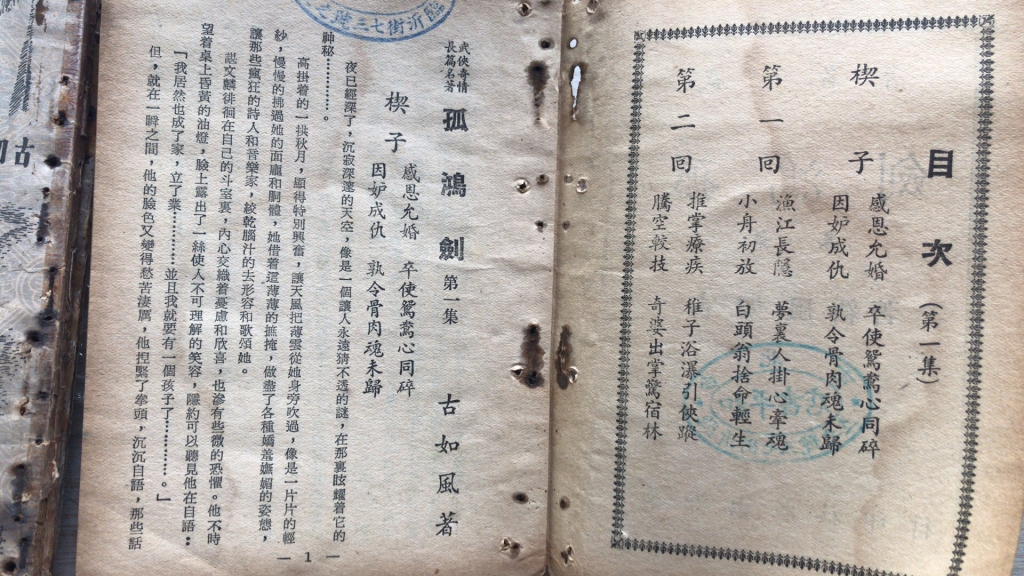 目次(第一集)
楔子
感恩允婚 卒使鴛鴦心同碎
因妒成仇 孰令骨肉魂未歸
第一回
漁江長隱 夢裏人掛心牽魂
小舟初放 白頭翁捨命輕生
第二回
推掌療疾 稚子浴瀑引俠蹤
騰空較技 奇婆出掌驚宿林
臨沂街七三號之
武俠奇情
長篇名著
孤鴻劍 第一集 古如風著
楔子
感恩允婚 卒使鴛鴦心同碎
因妒成仇 孰令骨肉魂未歸
夜已經深了,沉寂深邃的天空,像是一個讓人永遠猜不透的謎,在那裏眩耀着它的
神秘…………。
高掛着的一拱秋月,顯得特別興奮,讓天風把薄雲從她身旁吹過,像是一片片的輕
紗,慢慢的拂過她的面龐和胴體,她借着這薄薄的摭掩,做盡了各種嬌羞嫵媚的姿態,
讓那些瘋狂的詩人和音樂家,絞乾腦汁的去形容和歌頌她。
文麟徘徊在自己的斗室裏,內心交織着憂慮和欣喜,也滲有些微的恐懼。他不時
望着桌上昏黃的油燈,臉上露出了一絲使人不可理解的笑容,隱約可以聽見他在自語:
「我居然也成了家,立了業…………並且我就要有一個孩子了…………。」
但,就在一瞬之間,他的臉色又變得愁苦淒厲,他揑緊了拳頭,沉沉自語,那些話
— 1 —
古